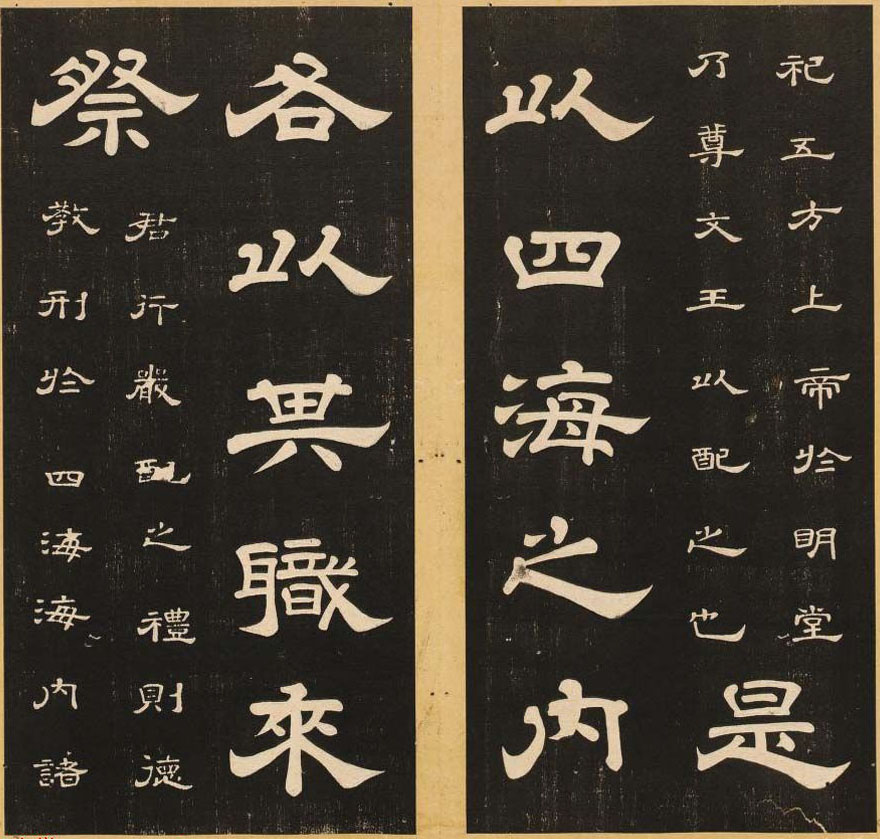 祀五方上帝於明堂
乃尊文王以配之也
是
以四海之內
各以其職來
祭
君行嚴配之禮則德
教刑於四海海內諸